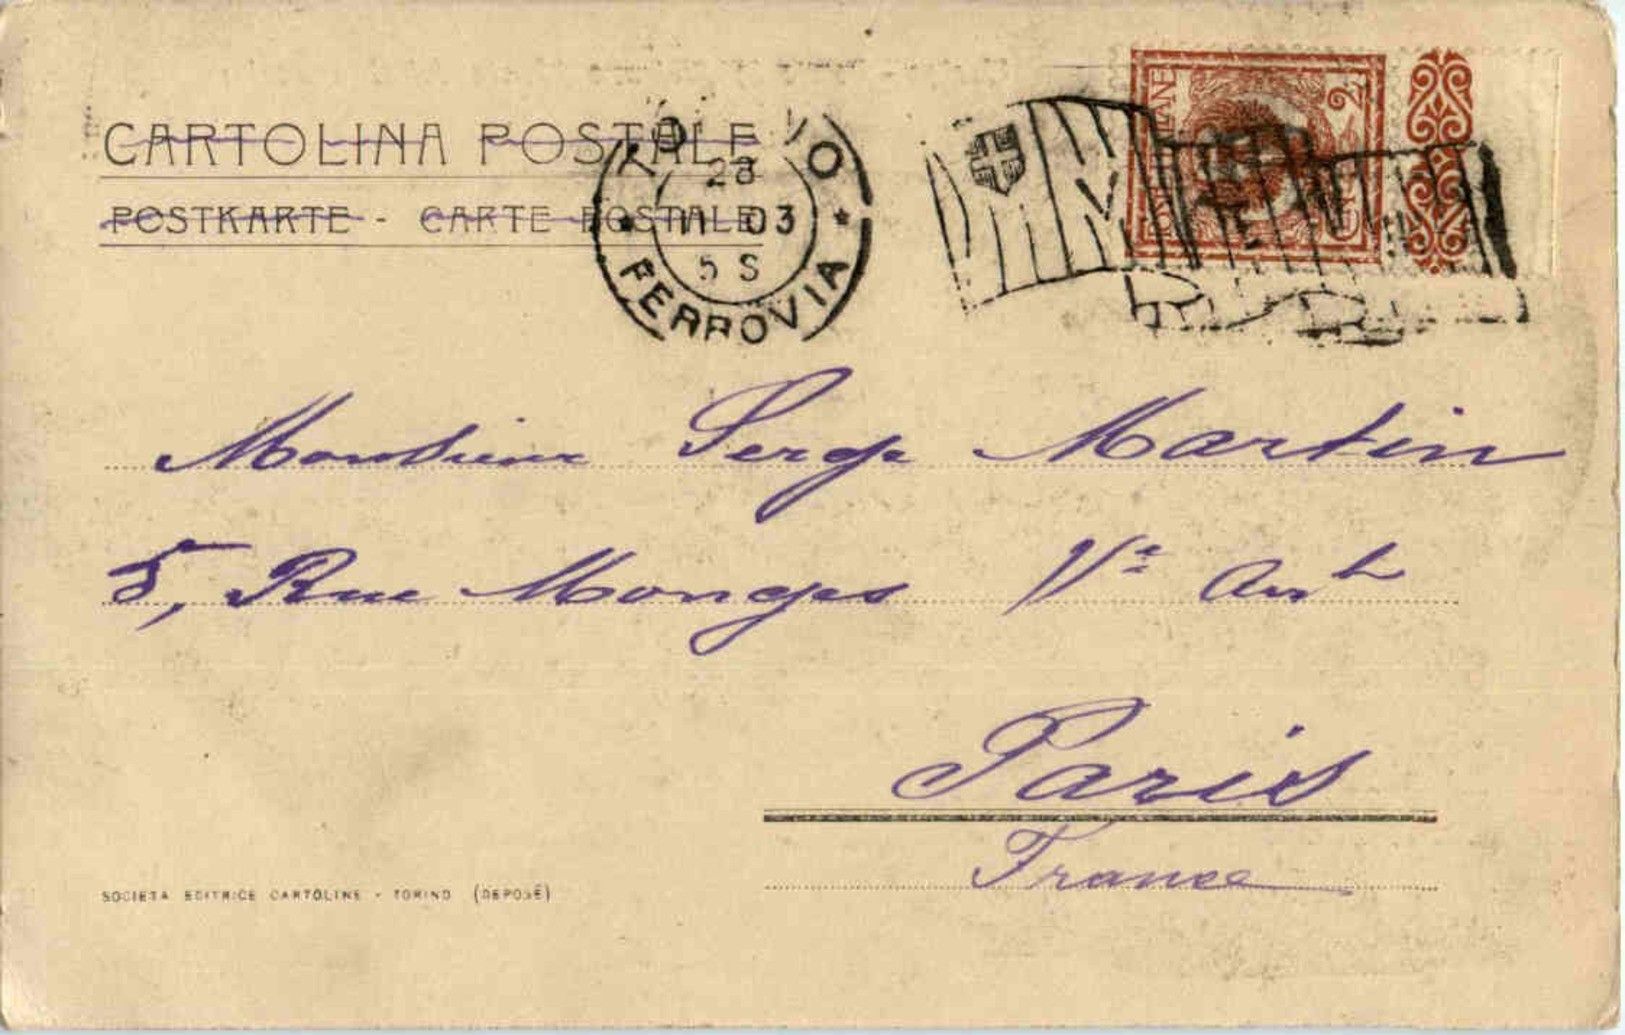 CARTOLINA POSTALE
POSTKARTE - CARTE POSTALE
TO NO
28
11 03
5 S
FERROVIA
POSTE ITALIANE
2
Monsieur Serge Martin
5, Rue Monges Ve Arrt
Paris
France
SOCIETA EDITRICE CARTOLINE - TORINO (DEPOSÉ)